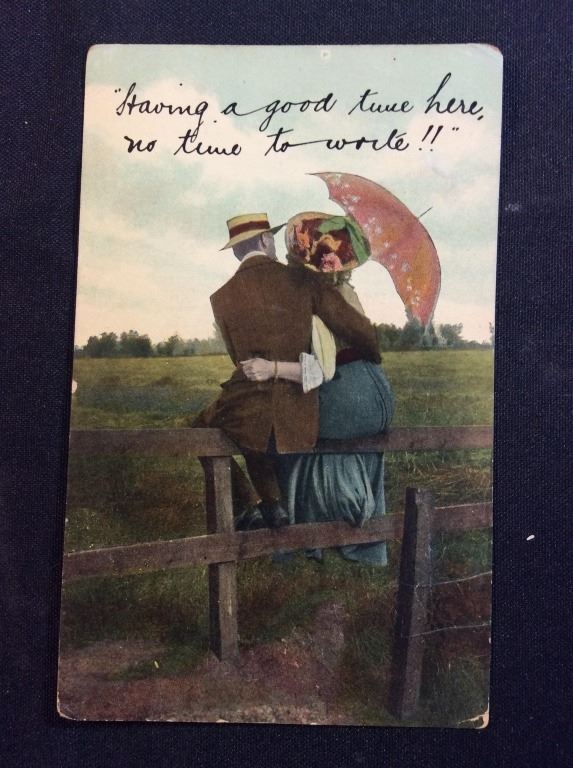 "Having a good time here,
no time to write!!"